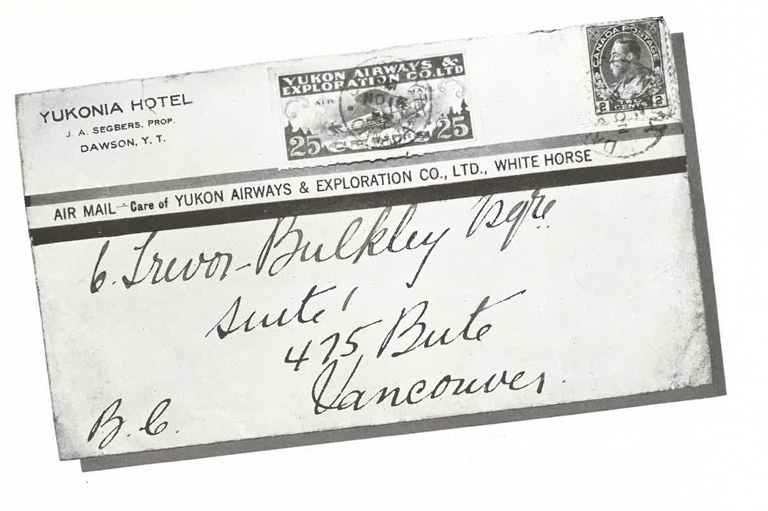 YUKONIA HOTEL
J. A. SEGBERS, PROP.
DAWSON, Y. T.
YUKON AIRWAYS &
EXPLORATION CO. LTD
AIR MAIL
25 25
CANADA POSTAGE
2 CENTS 2
AIR MAIL—Care of YUKON AIRWAYS & EXPLORATION CO., LTD., WHITE HORSE
C. Trevor-Bulkley Esqre
Suite 1
475 Bute
Vancouver.
B.C.